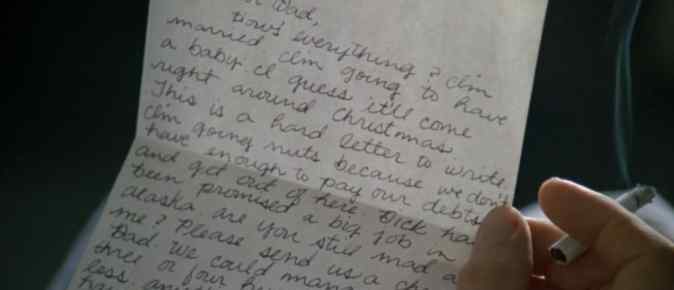 Dad,
How's everything? I'm
married. I'm going to have
a baby. I guess it'll come
right around Christmas.
This is a hard letter to write.
I'm going nuts because we don't
have enough to pay our debts
and get out of here. Dick ha
been promised a big job in
alaska. are you still mad a
me? Please send us a che
Dad. We could mana
three or four hu
less, any